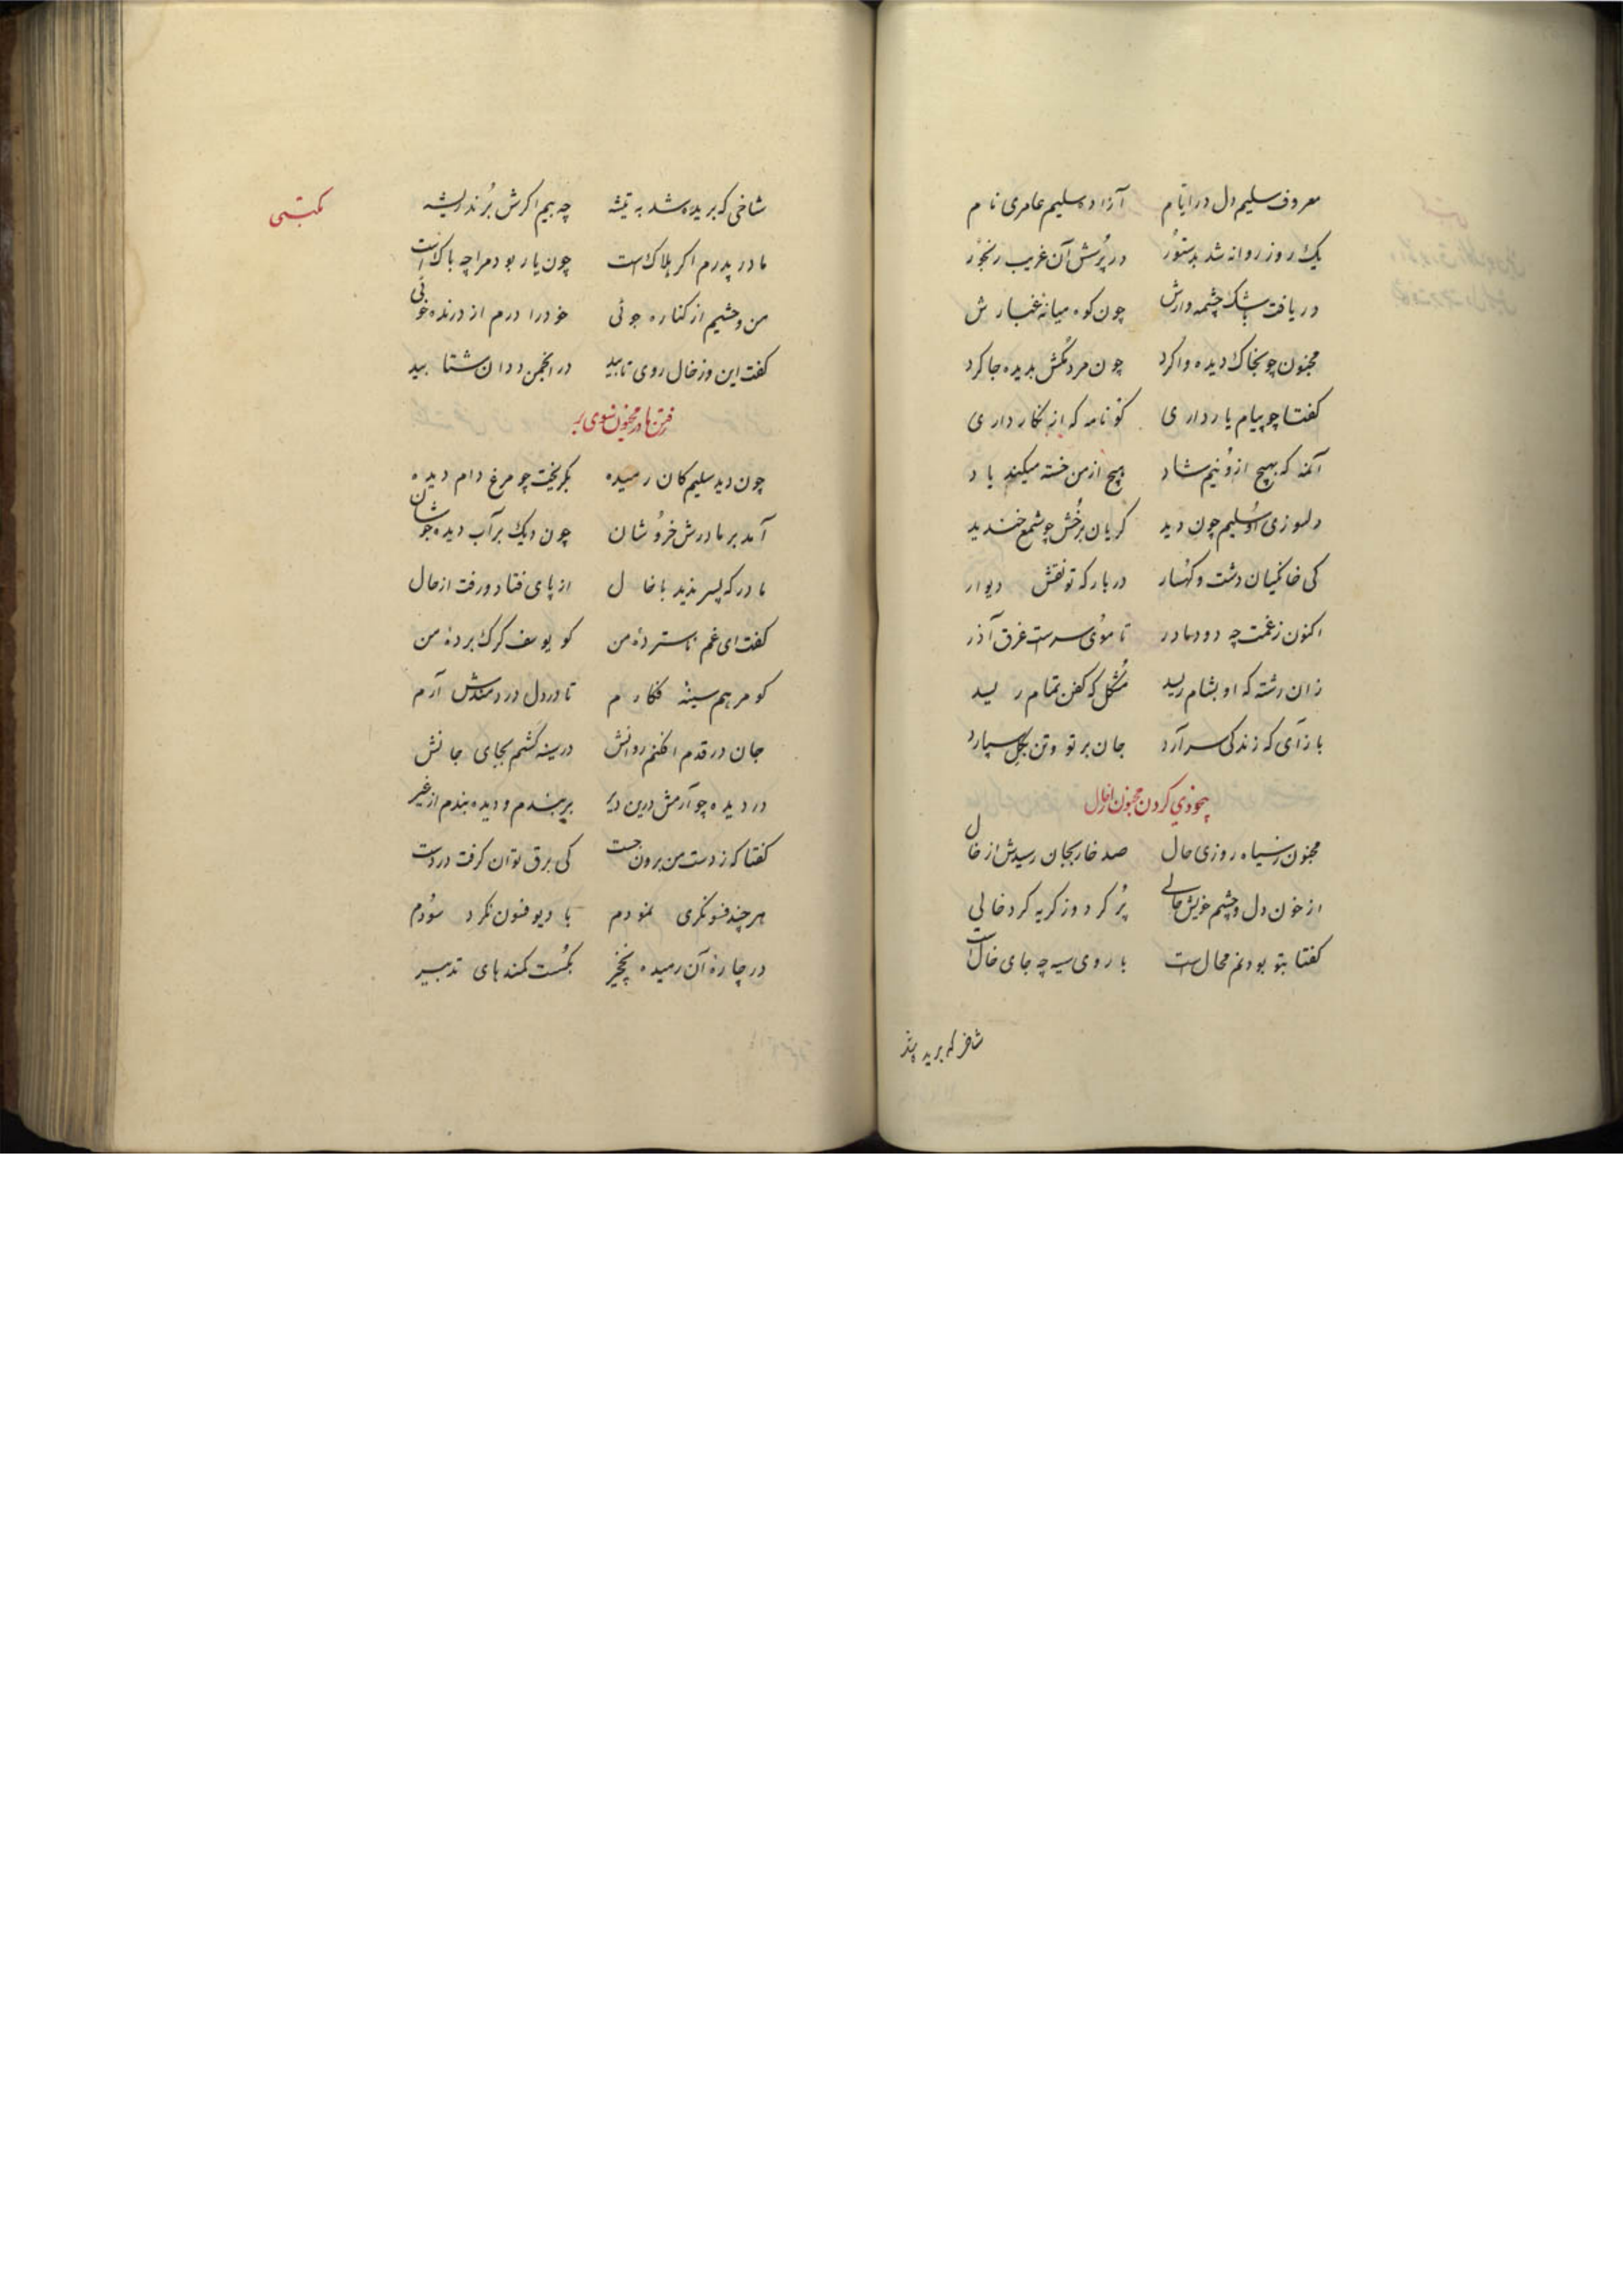 معروف سلیم دل در ایام آزاده سلیم عامری نام
یک روز روانه شد بدستور در پرسش آن غریب رنجور
دریافت بشک چشمه وارش چون کوه میانه غبارش
مجنون چو بخاک دیده وا کرد چون مردمکش بدیده جا کرد
کفتا چو پیام یار داری کو نامه که از نکار داری
آنمه که بهیچ ازو نیم شاد هیچ از من خسته میکند یاد
دلسوزی او سلیم چون دید کریان برخش چو شمع خندید
کی خانکیان دشت و کهسار در بار که تو نقش دیوار
اکنون ز غمت چه دود مادر تا موی سرست غرق آذر
زان رشته که او بشام رسید مشکل که کفن تمام رسید
باز آی که زندکی سر آرد جان بر تو و تن بکل سپارد
بیخودی کردن مجنون از خال
مجنون ز سیاه روزی حال صد خار بجان رسیدش از خال
از خون دل و چشم خویش حالی پر کرد و ز کریه کرد خالی
کفتا بتو بودنم محال است با روی سیه چه جای خال است
شاخی که بریده شد
مکتبی
شاخی که بریده شد به تیشه چه بیم اکرش برند ریشه
مادر پدرم اکر هلاک است چون یار بود مرا چه باک است
من وحشیم از کناره جوئی خود را درم از درنده خوئی
کفت این وز خال روی تابید در انجمن ددان شتابید
رفتن مادر مجنون بسوی بر
چون دید سلیم کان رمیده بکریخت چو مرغ دام دیده
آمد بر مادرش خروشان چون دیک بر آب دیده جوشان
مادر که پسر ندید با خال از پای فتاد و رفت از حال
کفت ای غم ناستردهٔ من کو یوسف کرک بردهٔ من
کو مرهم سینه فکارم تا در دل دردمندش آرم
جان در قدم افکنم روانش در سینه کشم بجای جانش
در دیده چو آرمش درین دیر بر بندم و دیده بندم از غیر
کفتا که ز دست من برون جست کی برق توان کرفت در دست
هر چند فسونکری نمودم با دیو فنون نکرد سودم
در چارهٔ آن رمیده نخچیر بکست کمندهای تدبیر